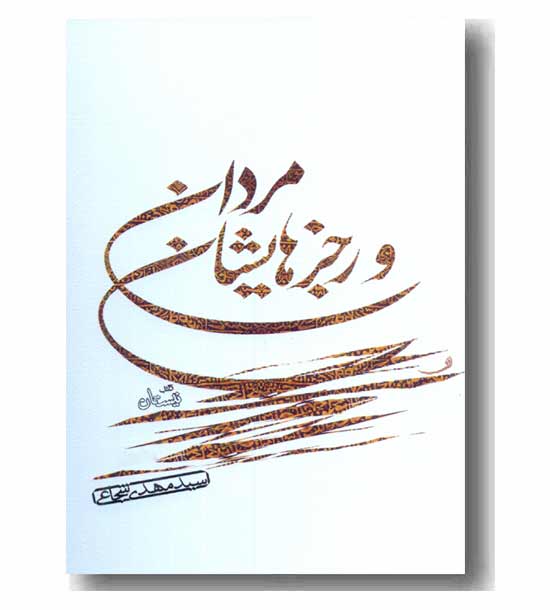 مردان
و رجزهایشان
نیستان
سید مهدی شجاعی